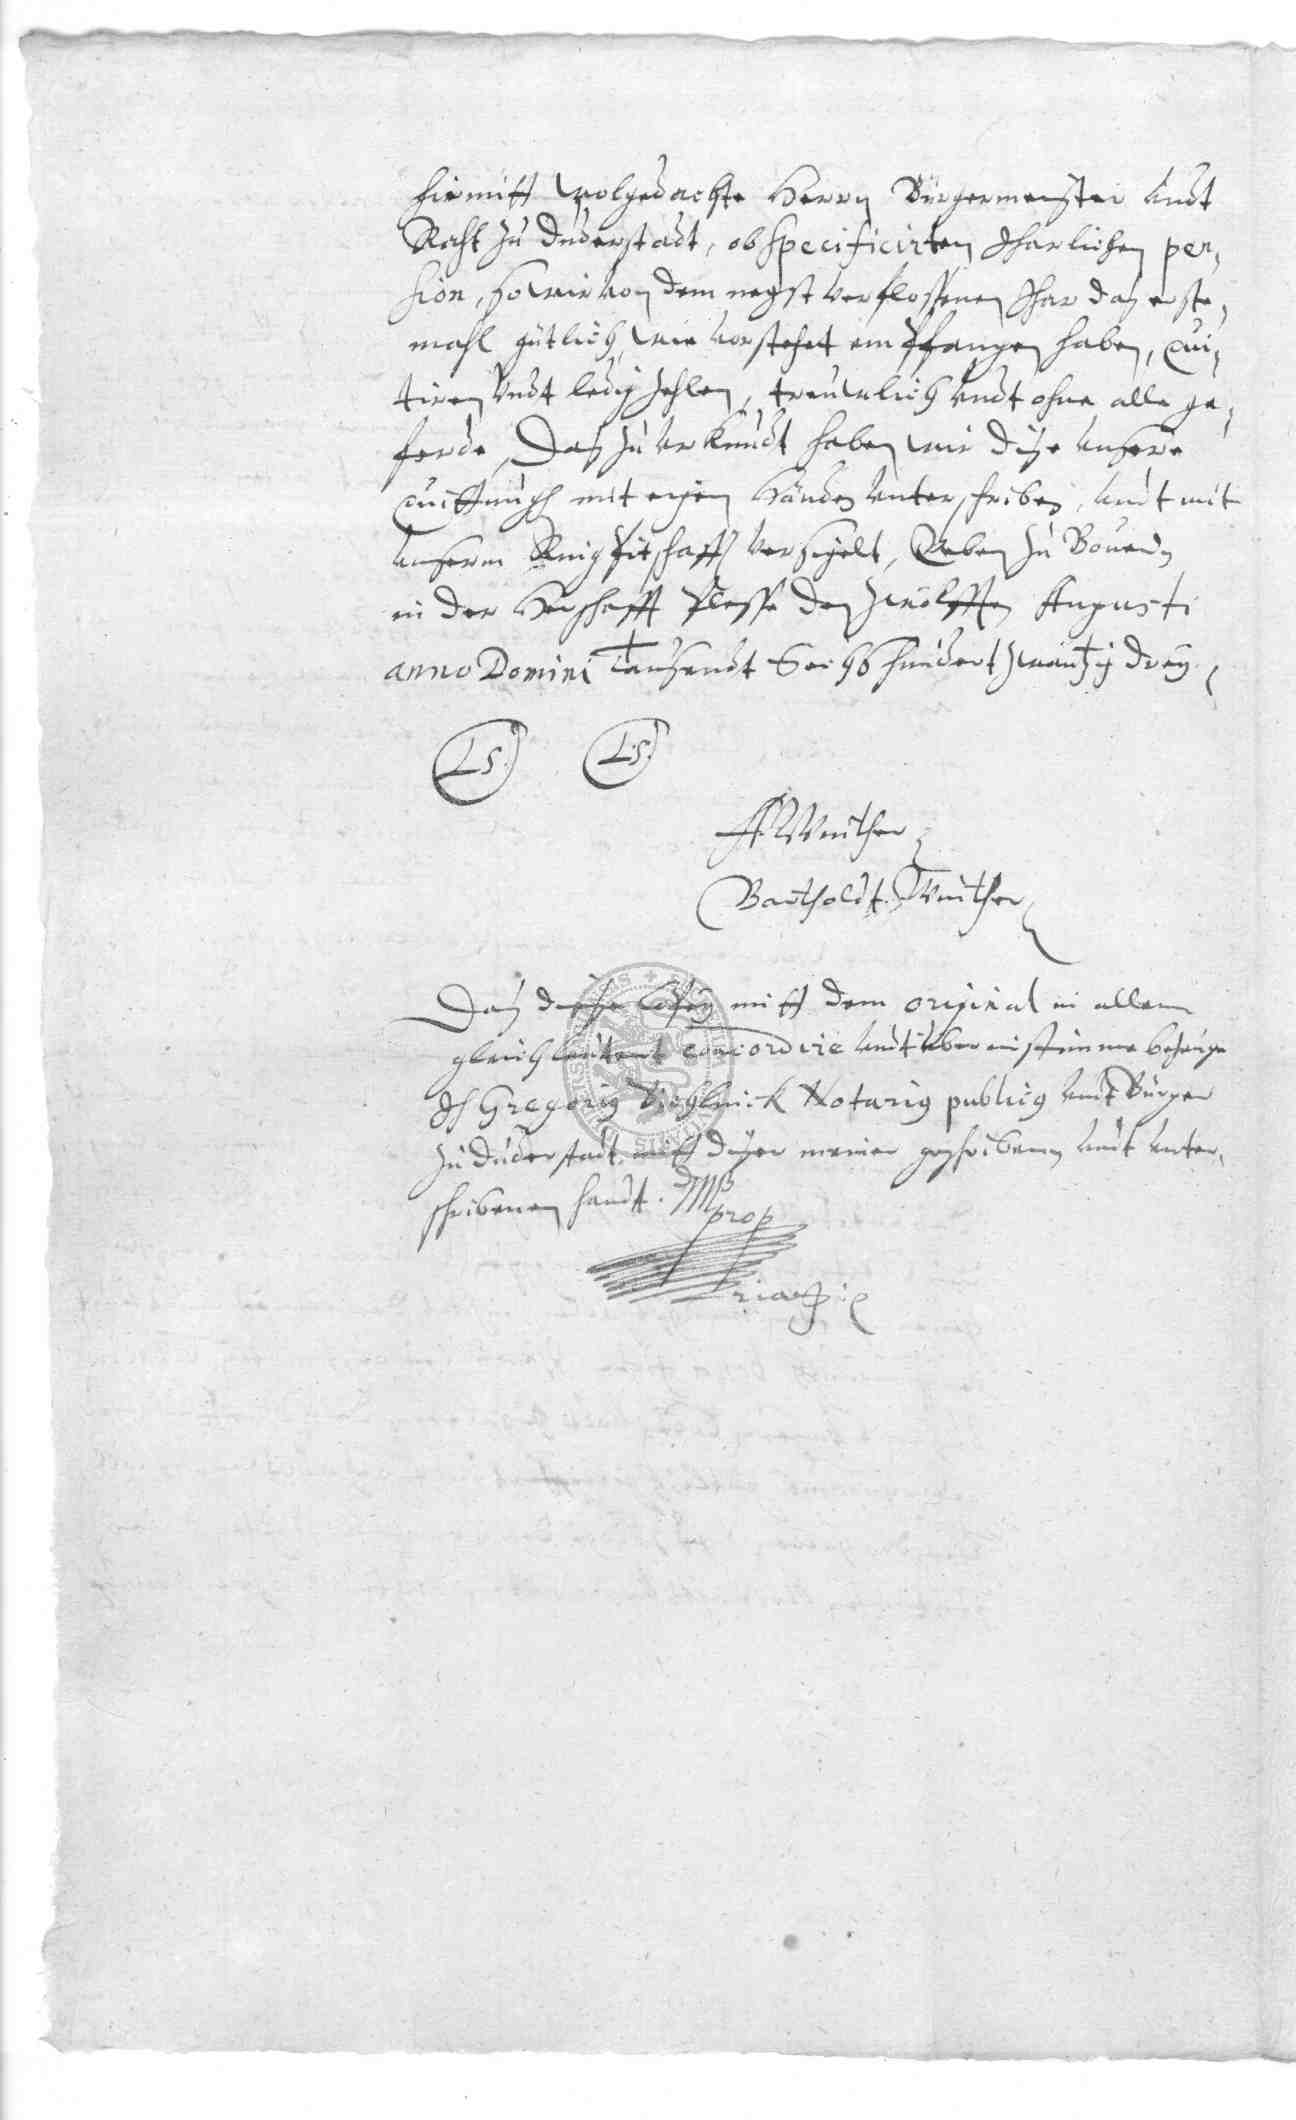 hiemitt wolgedachte Herrn Bürgermeister undt
Raht zu Duderstadt, ob specificirten Jharlichen pen,
sion, so wir von dem negst verflossenen Jhar daß erste,
mahl gütlich, wie vorstehet empfangen haben, qui,
tiren undt ledig zehlen, treuwlich undt ohne alle ge,
ferde, Daß zu Urkundt haben wir diße unsere
quittungh mit eigen Händen unterschriben, undt mit
unserm Ring Pitschafft versigelt, Geben zu Bovenden
in der Herschafft Plesse den zwölfften Augusti
anno Domini Tausendt Sechshundert zwantzig drey.
LS. L.S.
Winther
Bartholdt Winther
Daß diese Copey mitt dem original in allem
gleichlautent concordire undt übereinstimme bezeuge
Ich Gregorius Notarius publicus undt Bürger
zu Duderstadt mitt dißer meiner geschribenen undt unter,
schribenen handt. Mß
prop
ria